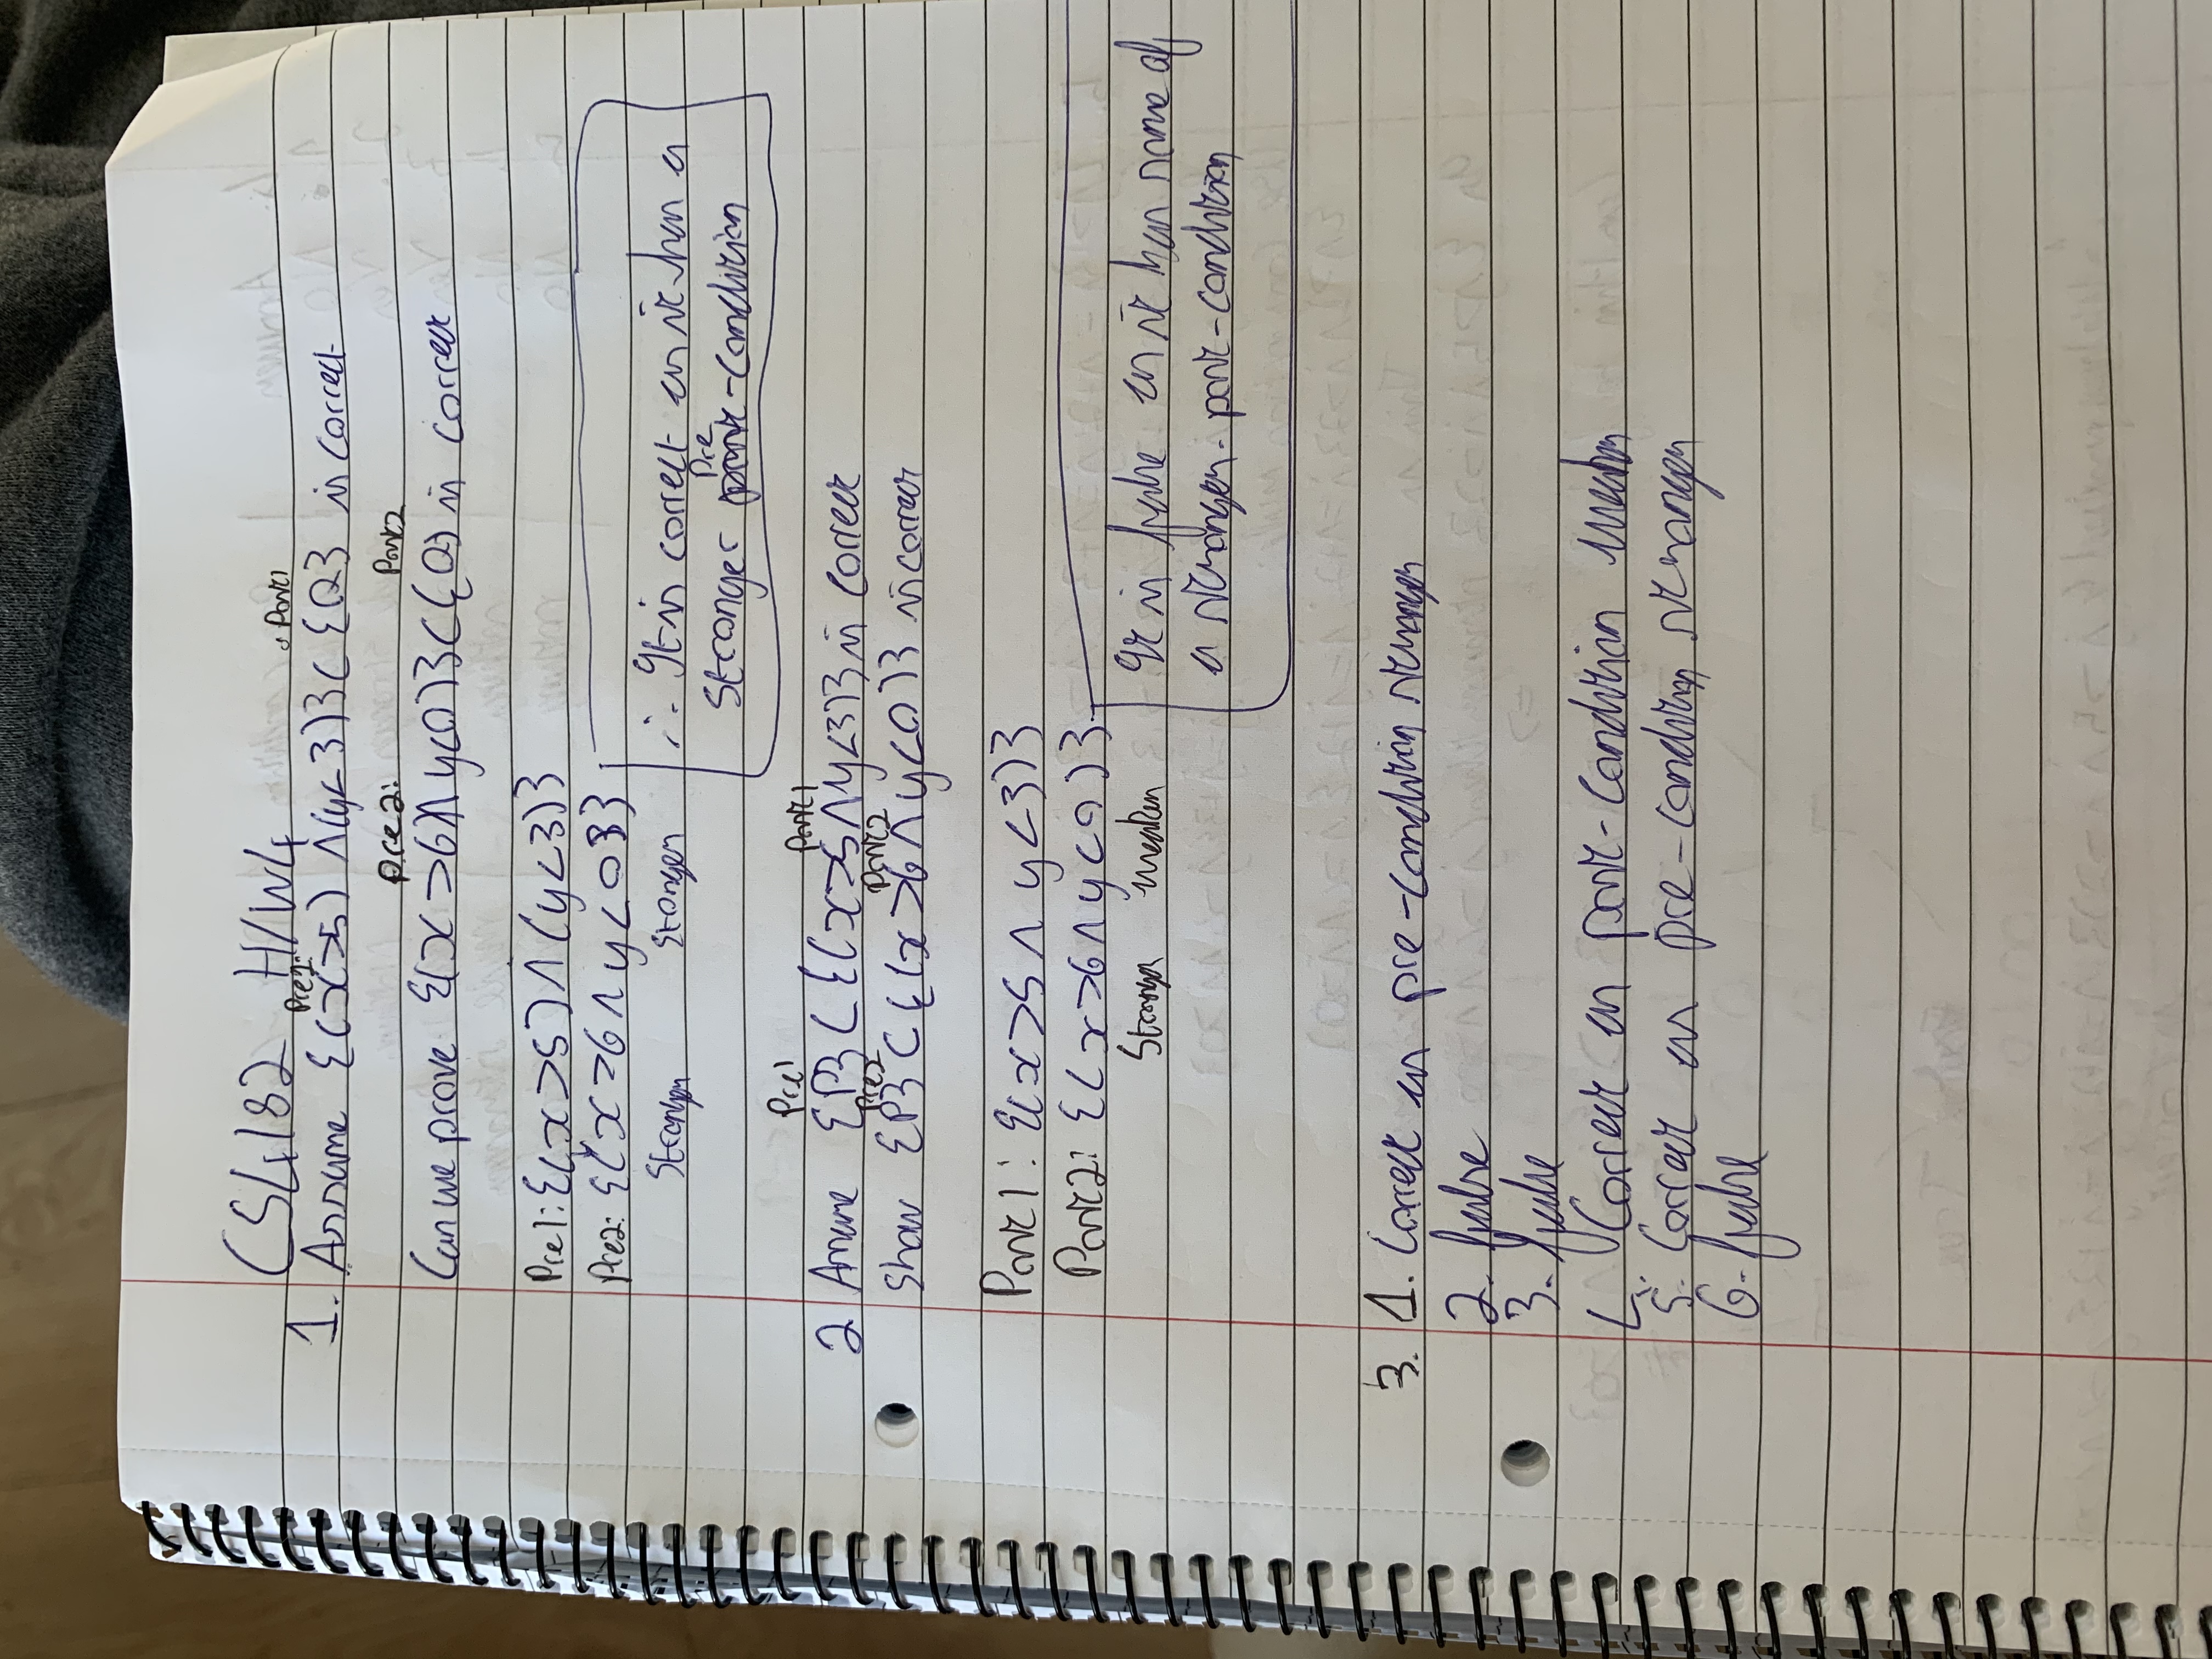 CS4182 H/W4
Pre1: Post1
1. Assume {(x>5) ∧(y<3)}C{Q} is correct
Pre2: Post2
Can we prove {(x>6)∧ y<0)}C{Q} is correct
Pre1: {(x>5)∧(y<3)}
Pre2: {(x>6 ∧ y<0)}
Stronger Stronger
∴ It is correct as it has a
Pre
stronger post-condition
Pre1 Post1
2 Assume {P} C {(x>5∧y<3)} is correct
Pre2 Post2
Show {P} C {(x>6∧y<0)} is correct
Post1: {(x>5∧ y<3)}
Post2: {(x>6∧y<0)}
Stronger weaker
It is false as it has some of
a stronger post-condition
3. 1. Correct as pre-condition stronger
2. false
3. false
4. Correct as post-condition weaker
5. Correct as pre-condition stronger
6. false